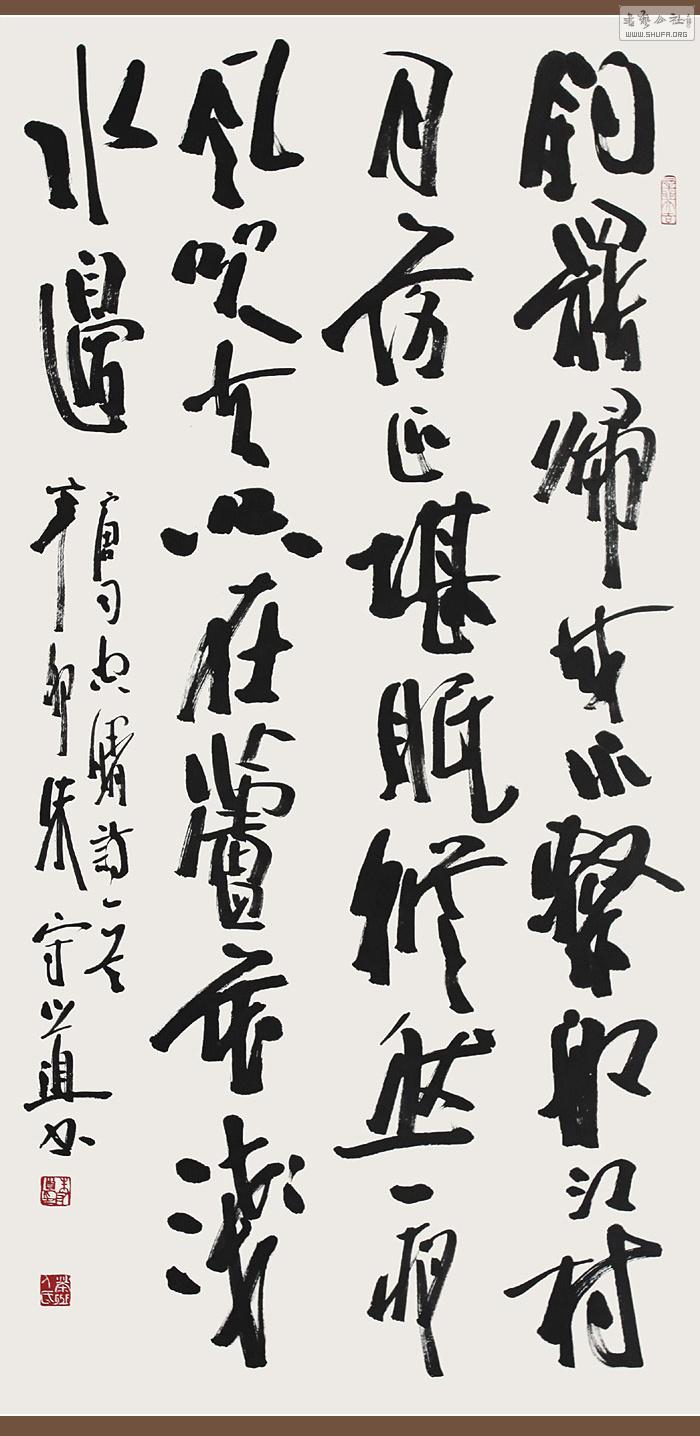 书艺公社
WWW.SHUFA.ORG
釣罷歸来不繫船江村
月落正堪眠縱然一夜
风吹去只在蘆花淺
水邊
唐司空曙詩一首
辛卯朱守道书